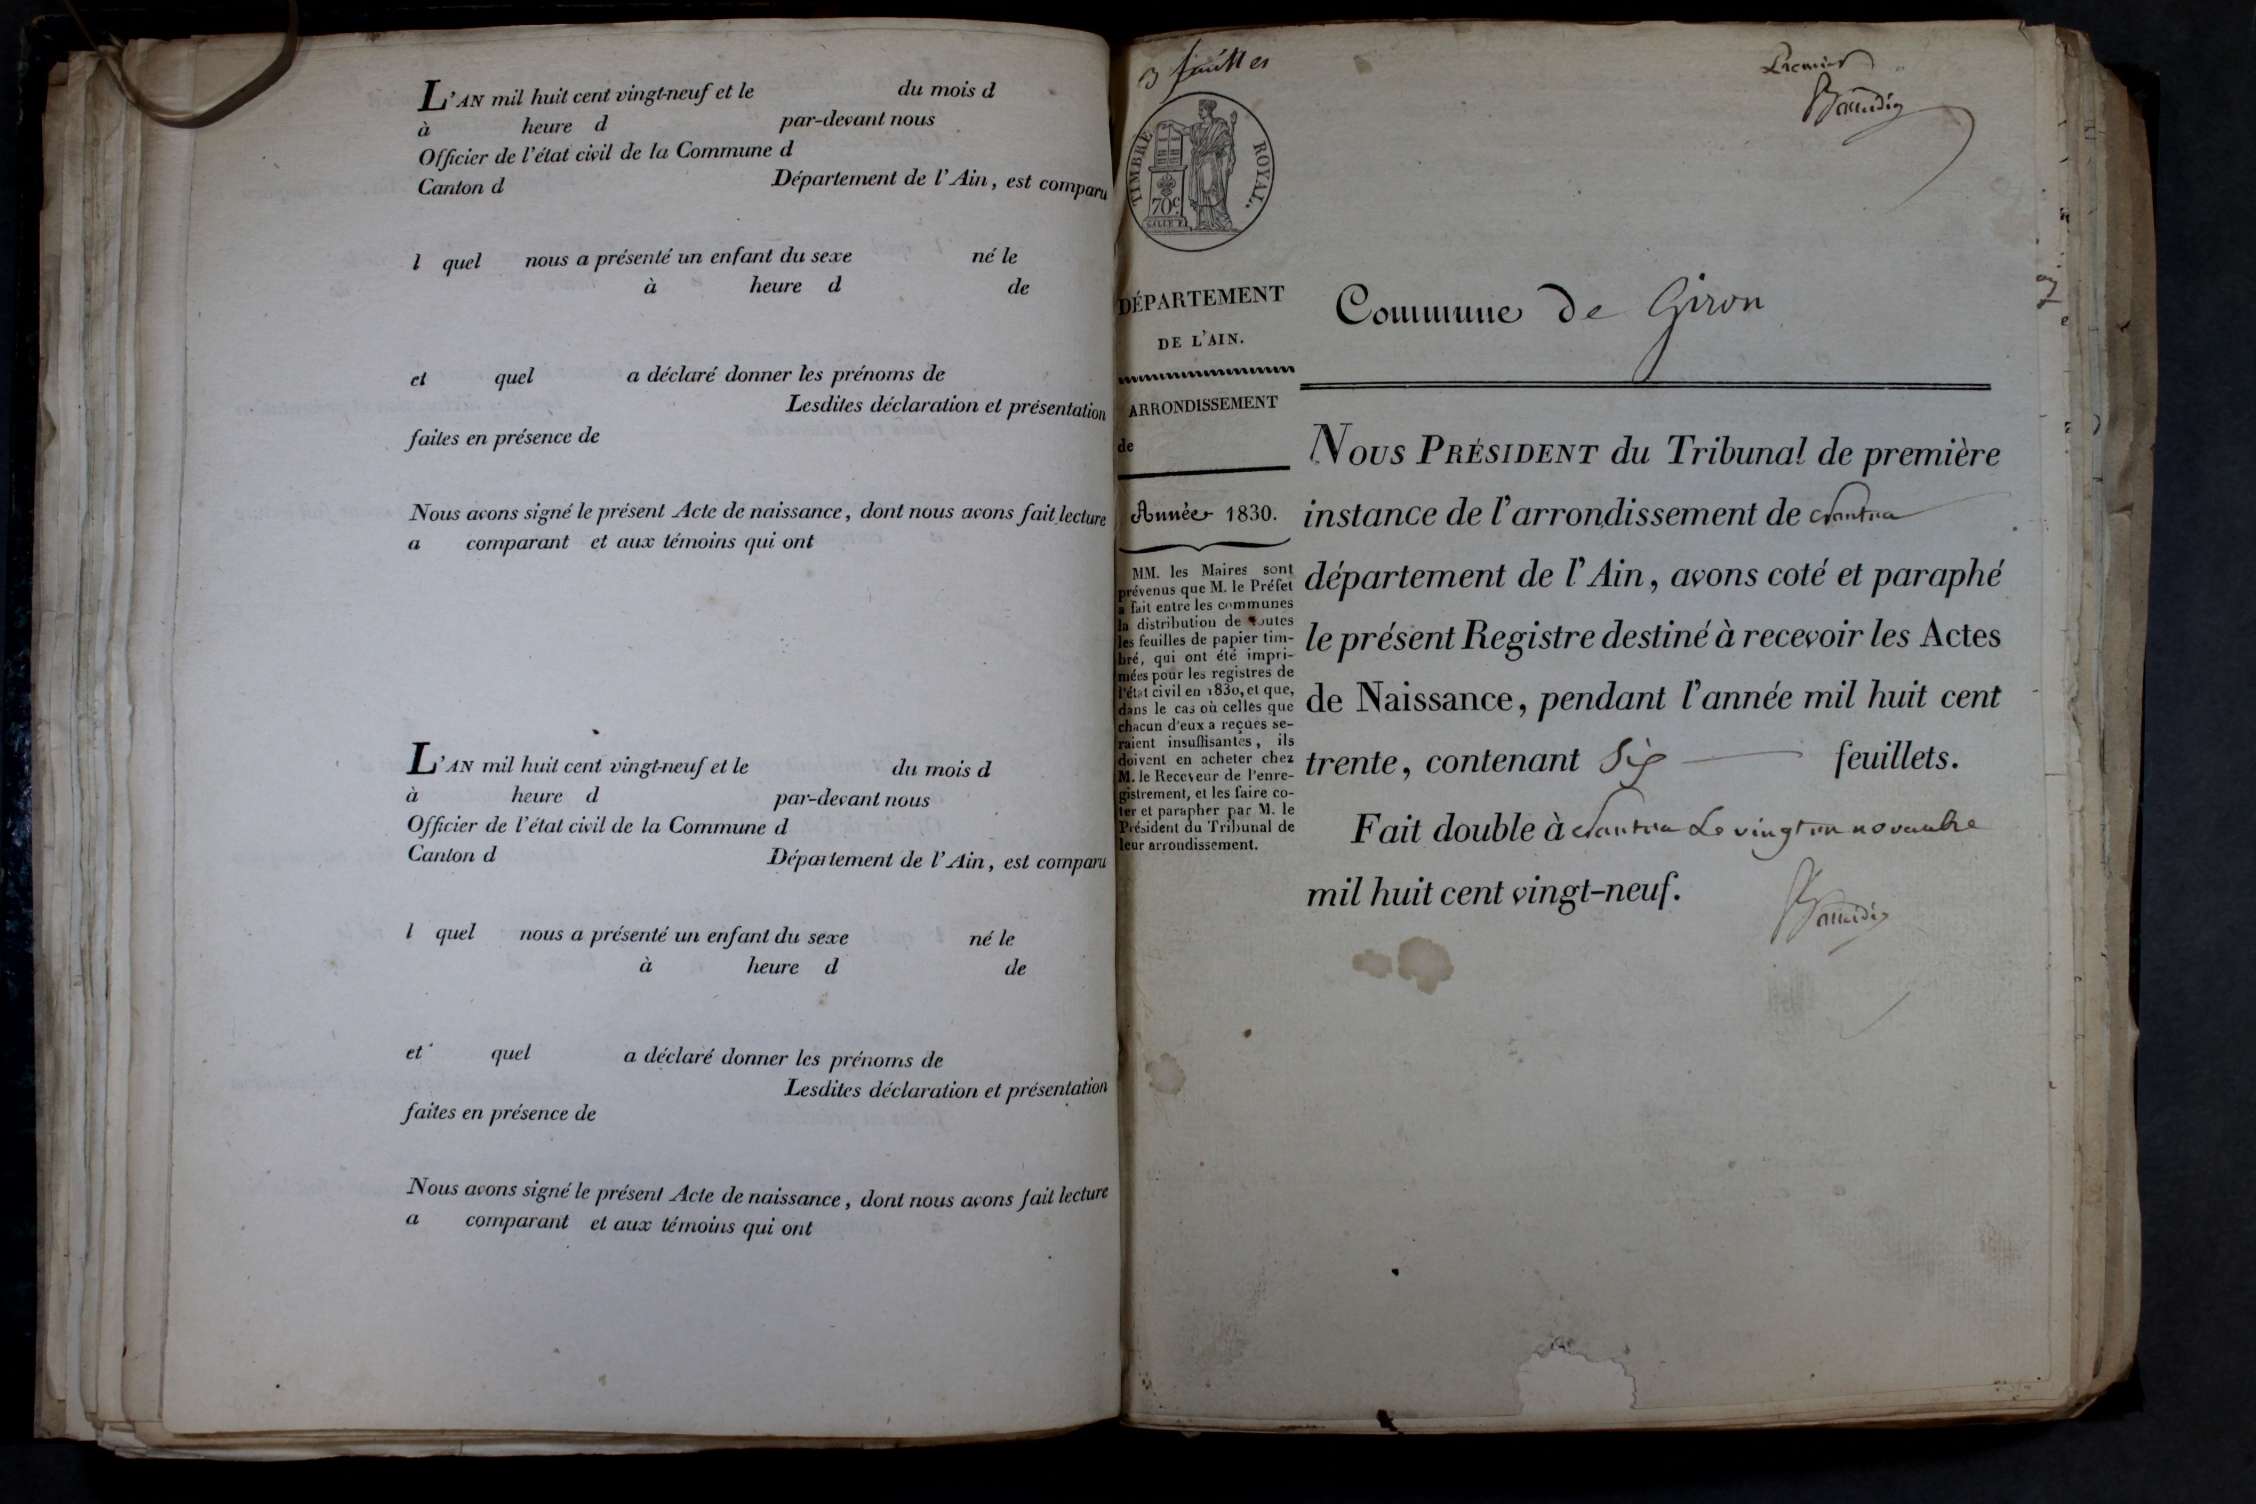 L'AN mil huit cent vingt-neuf et le du mois d
à heure d par-devant nous
Officier de l'état civil de la Commune d
Canton d Département de l'Ain, est comparu
l quel nous a présenté un enfant du sexe né le
à heure d de
et quel a déclaré donner les prénoms de
Lesdites déclaration et présentation
faites en présence de
Nous avons signé le présent Acte de naissance, dont nous avons fait lecture
a comparant et aux témoins qui ont
L'AN mil huit cent vingt-neuf et le du mois d
à heure d par-devant nous
Officier de l'état civil de la Commune d
Canton d Département de l'Ain, est comparu
l quel nous a présenté un enfant du sexe né le
à heure d de
et quel a déclaré donner les prénoms de
Lesdites déclaration et présentation
faites en présence de
Nous avons signé le présent Acte de naissance, dont nous avons fait lecture
a comparant et aux témoins qui ont
3 feuilles
Premier
TIMBRE ROYAL.
70c
DÉPARTEMENT
DE L'AIN.
ARRONDISSEMENT
de
Année 1830.
MM. les Maires sont
prévenus que M. le Préfet
a fait entre les communes
la distribution de toutes
les feuilles de papier tim-
bré, qui ont été impri-
mées pour les registres de
l'état civil en 1830, et que,
dans le cas où celles que
chacun d'eux a reçues se-
raient insuffisantes, ils
doivent en acheter chez
M. le Receveur de l'enre-
gistrement, et les faire co-
ter et parapher par M. le
Président du Tribunal de
leur arrondissement.
Commune de Giron
NOUS PRÉSIDENT du Tribunal de première
instance de l'arrondissement de Nantua
département de l'Ain, avons coté et paraphé
le présent Registre destiné à recevoir les Actes
de Naissance, pendant l'année mil huit cent
trente, contenant Six feuillets.
Fait double à Nantua Le vingt un novembre
mil huit cent vingt-neuf.